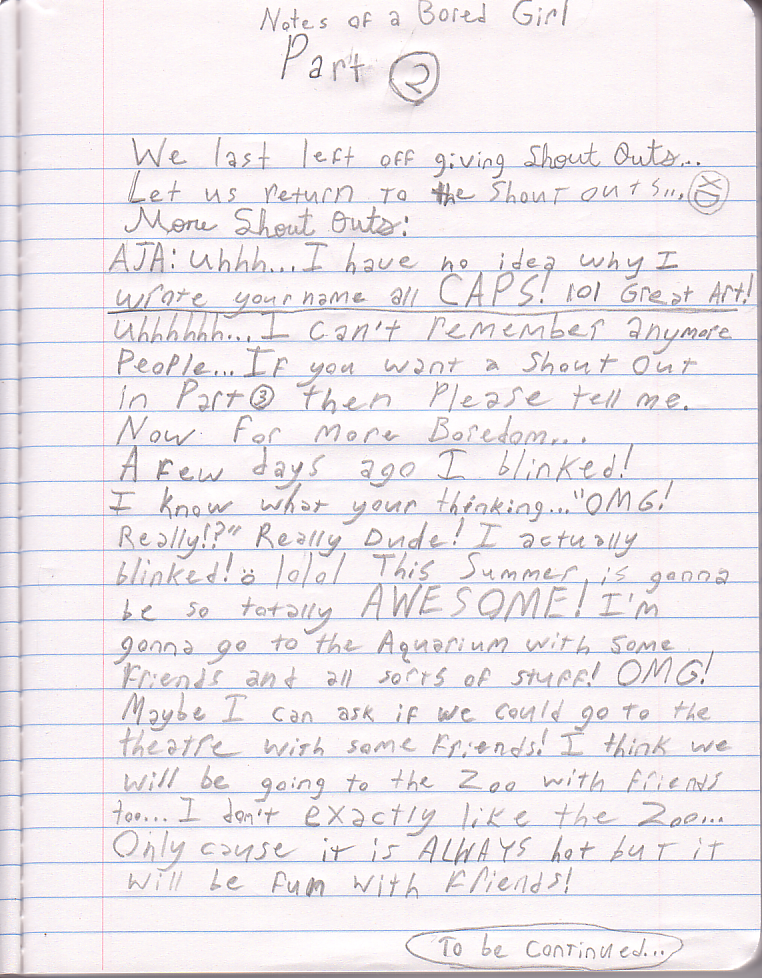 Notes of a Bored Girl
Part 2
We last left off giving Shout Outs...
Let us return to the shout outs... XD
More Shout Outs:
AJA: Uhhh...I have no idea why I
wrote your name all CAPS! lol Great Art!
Uhhhhhh...I can't remember anymore
People...If you want a Shout Out
in Part 3 then Please tell me.
Now for More Boredom...
A Few days ago I blinked!
I know what your thinking..."OMG!
Really!?" Really Dude! I actually
blinked! lolol This Summer is gonna
be so totally AWESOME! I'm
gonna go to the Aquarium with some
Friends and all sorts of stuff! OMG!
Maybe I can ask if we could go to the
theatre with some Friends! I think we
will be going to the Zoo with friends
too...I don't exactly like the Zoo...
Only cause it is ALWAYS hot but it
will be fum with Friends!
To be Continued...